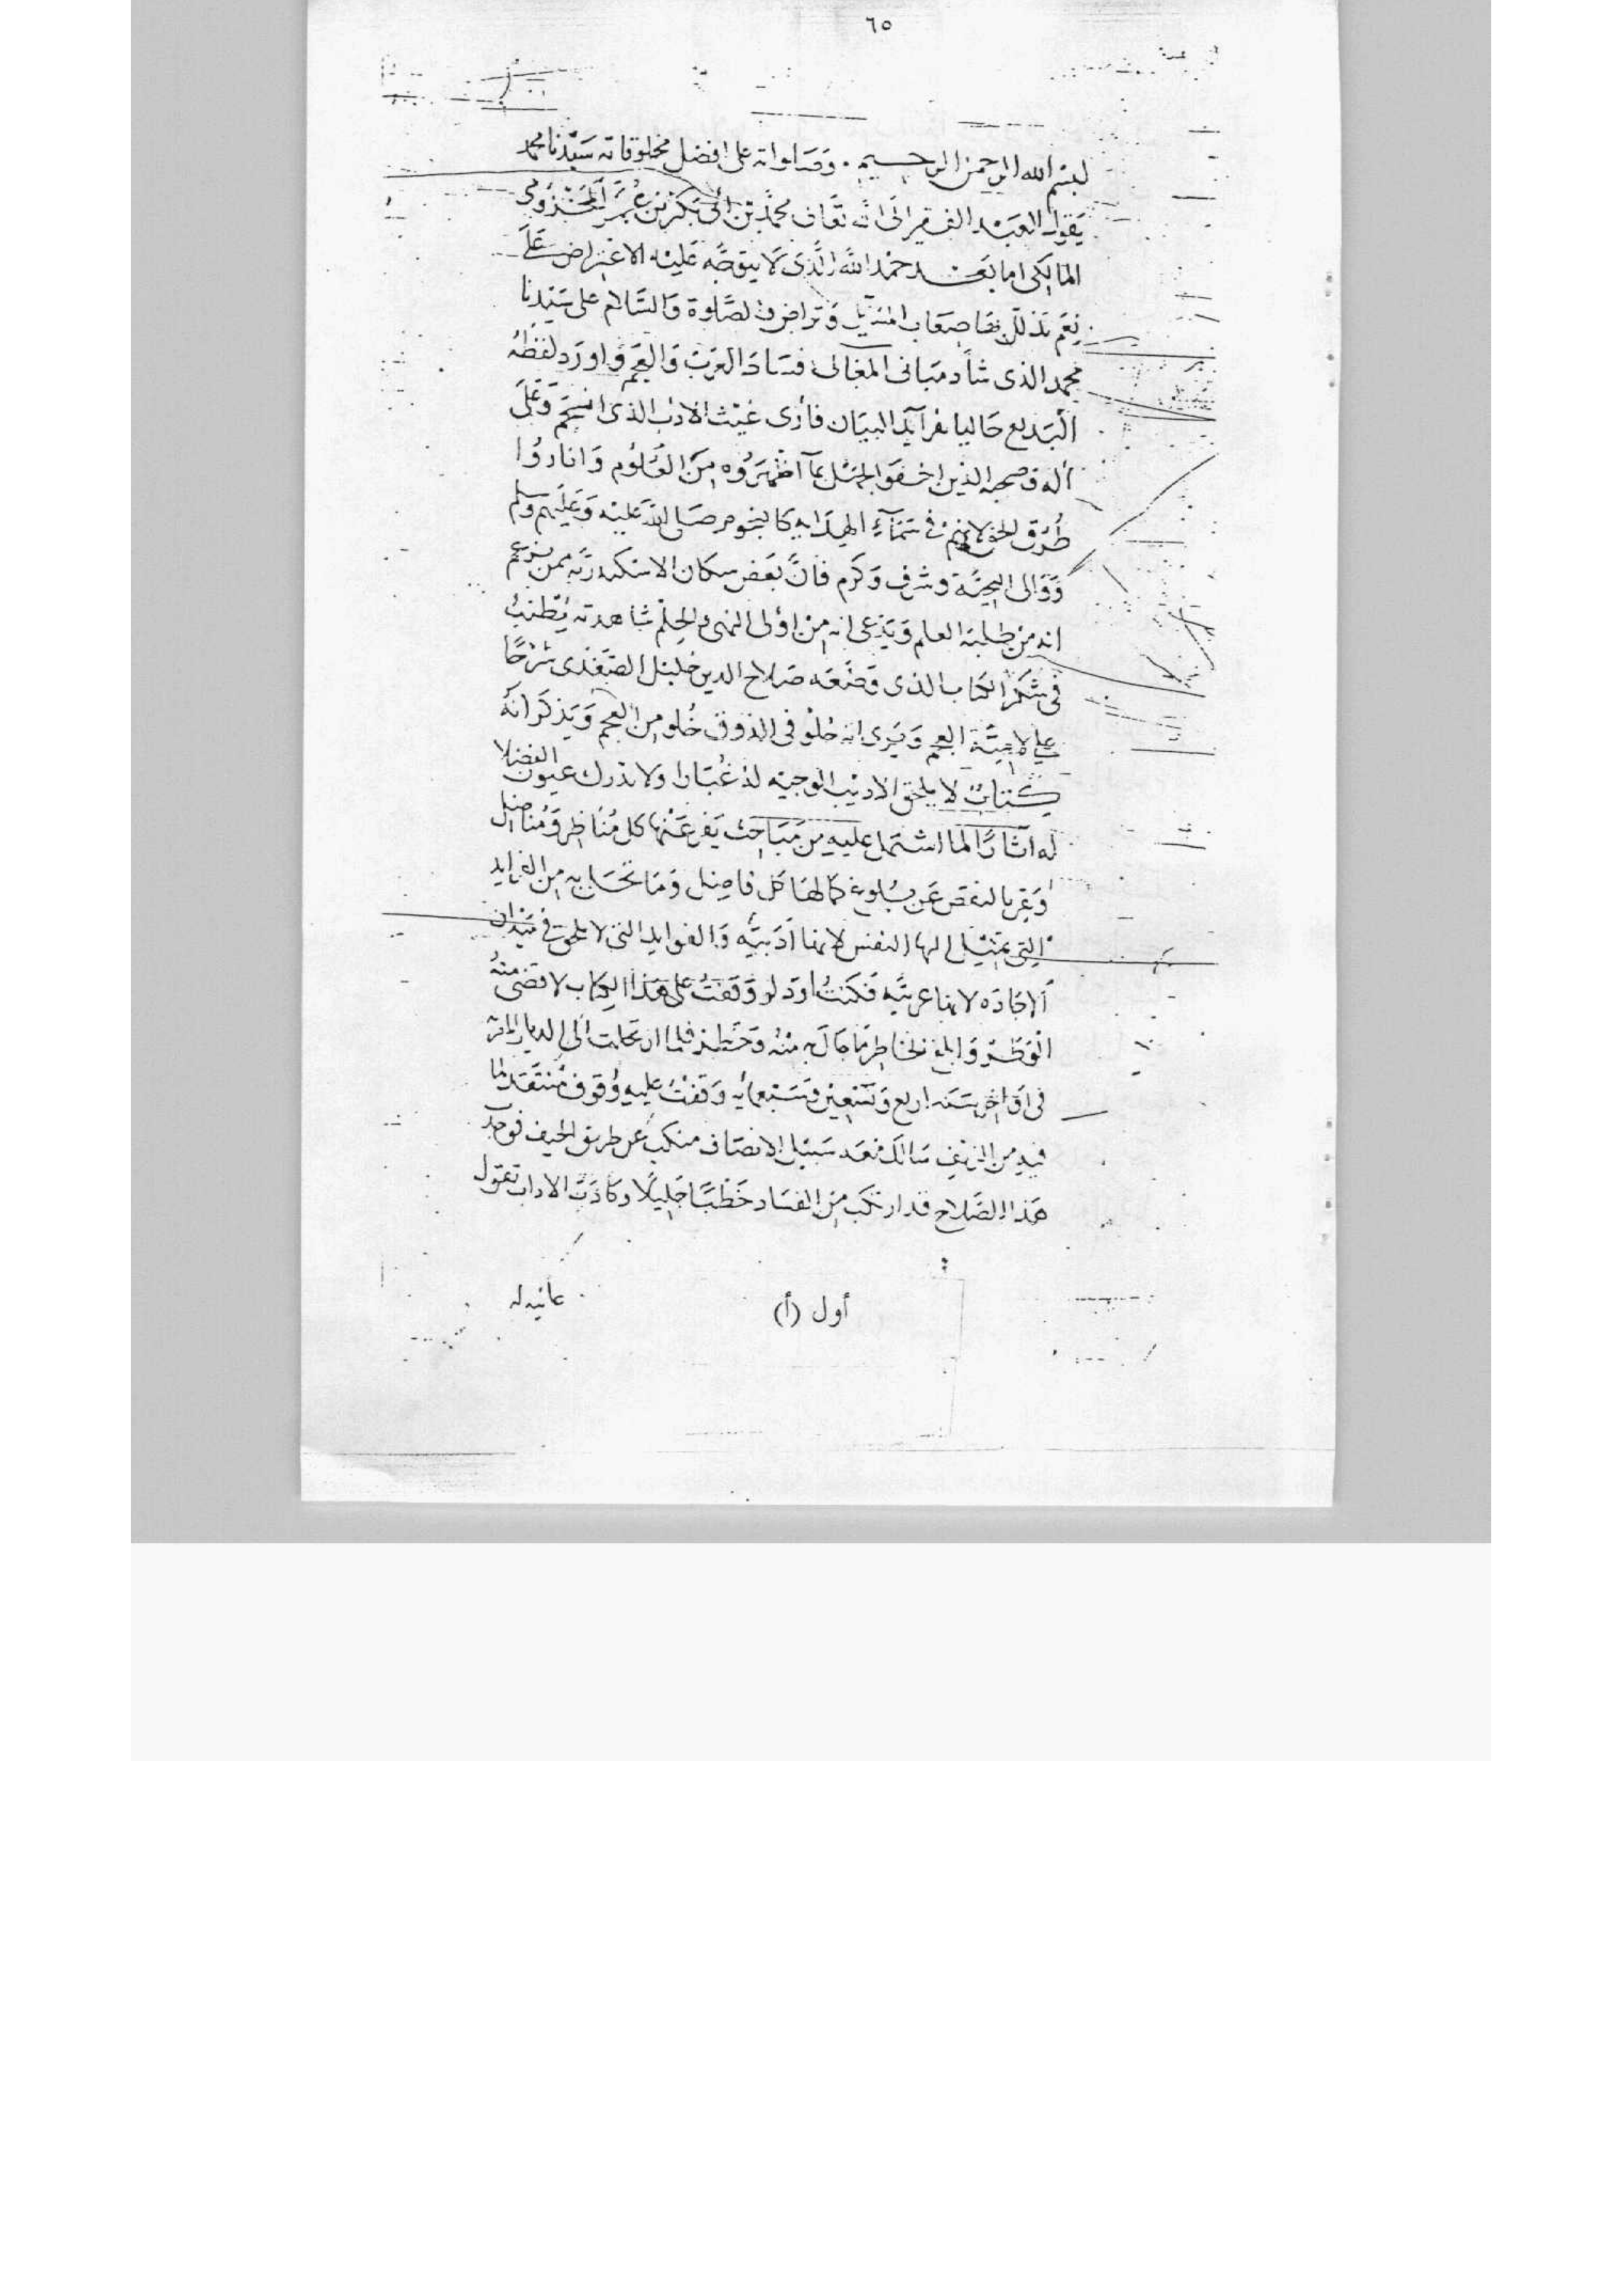 ٦٥
بسم الله الرحمن الرحيم . وصلواته على افضل مخلوقاته سيدنا محمد
يقول العبد الفقير الى الله تعالى محمد بن أبي بكر بن عمر المخزومي
المالكي اما بعد حمد الله الذي لا يتوجه عليه الاعتراض على
نعم تذلل بها صعاب وتراض والصلوة والسلام على سيدنا
محمد الذي شاد مباني المعالي فساد العرب والعجم واورد لفظه
البديع حاليا بفرآيد البيان فأرى غيث الادب الذي انسجم وعلى
أله وصحبه الذين اخفوا الجهل بمآ اظهروه من العلوم واناروا
طرق الحق لانهم في سمآء الهداية كالنجوم صلى الله عليه وعليهم وسلم
ووالى التحية وشرف وكرم فان بعض سكان الاسكندرية ممن يزعم
انه من طلبة العلم ويدعى انه من اولى النهى والحلم شاهدته يطنب
في شكر الكتاب الذي وضعه صلاح الدين خليل الصفدي شرحا
على لامية العجم ويرى انه حلو في الذوق خلو من العجم ويذكر انه
كتاب لا يلحق الاديب الوجيه لذ غبارا ولا تدرك عيون الفضلا
له آثارا لما اشتمل عليه من مباحث يفر عنها كل مناظر ومناضل
ويقر بالنقص عن بلوغ كمالها كل فاضل وما تحلى به من الفرايد
التي تميل لها النفس لانها أدبية والفوايد التي لا تلحق في ميدان
الاجادة لانها عربية فكنت اود لو وقفت على هذا الكتاب لاقضى منه
الوطر وابلغ الخاطر ما جال به منه وخطر فلما ارتحلت الى الديار المصرية
في اواخر سنة اربع وتسعين وسبعمائة وقفت عليه وقوف منتقد لما
فيه من الزيف سالك فيه سبيل الانصاف منكب عن طريق الحيف فوجدت
هذا الصلاح قد ارتكب من الفساد خطبا جليلا وكادت الاداب تقول
أول (أ)